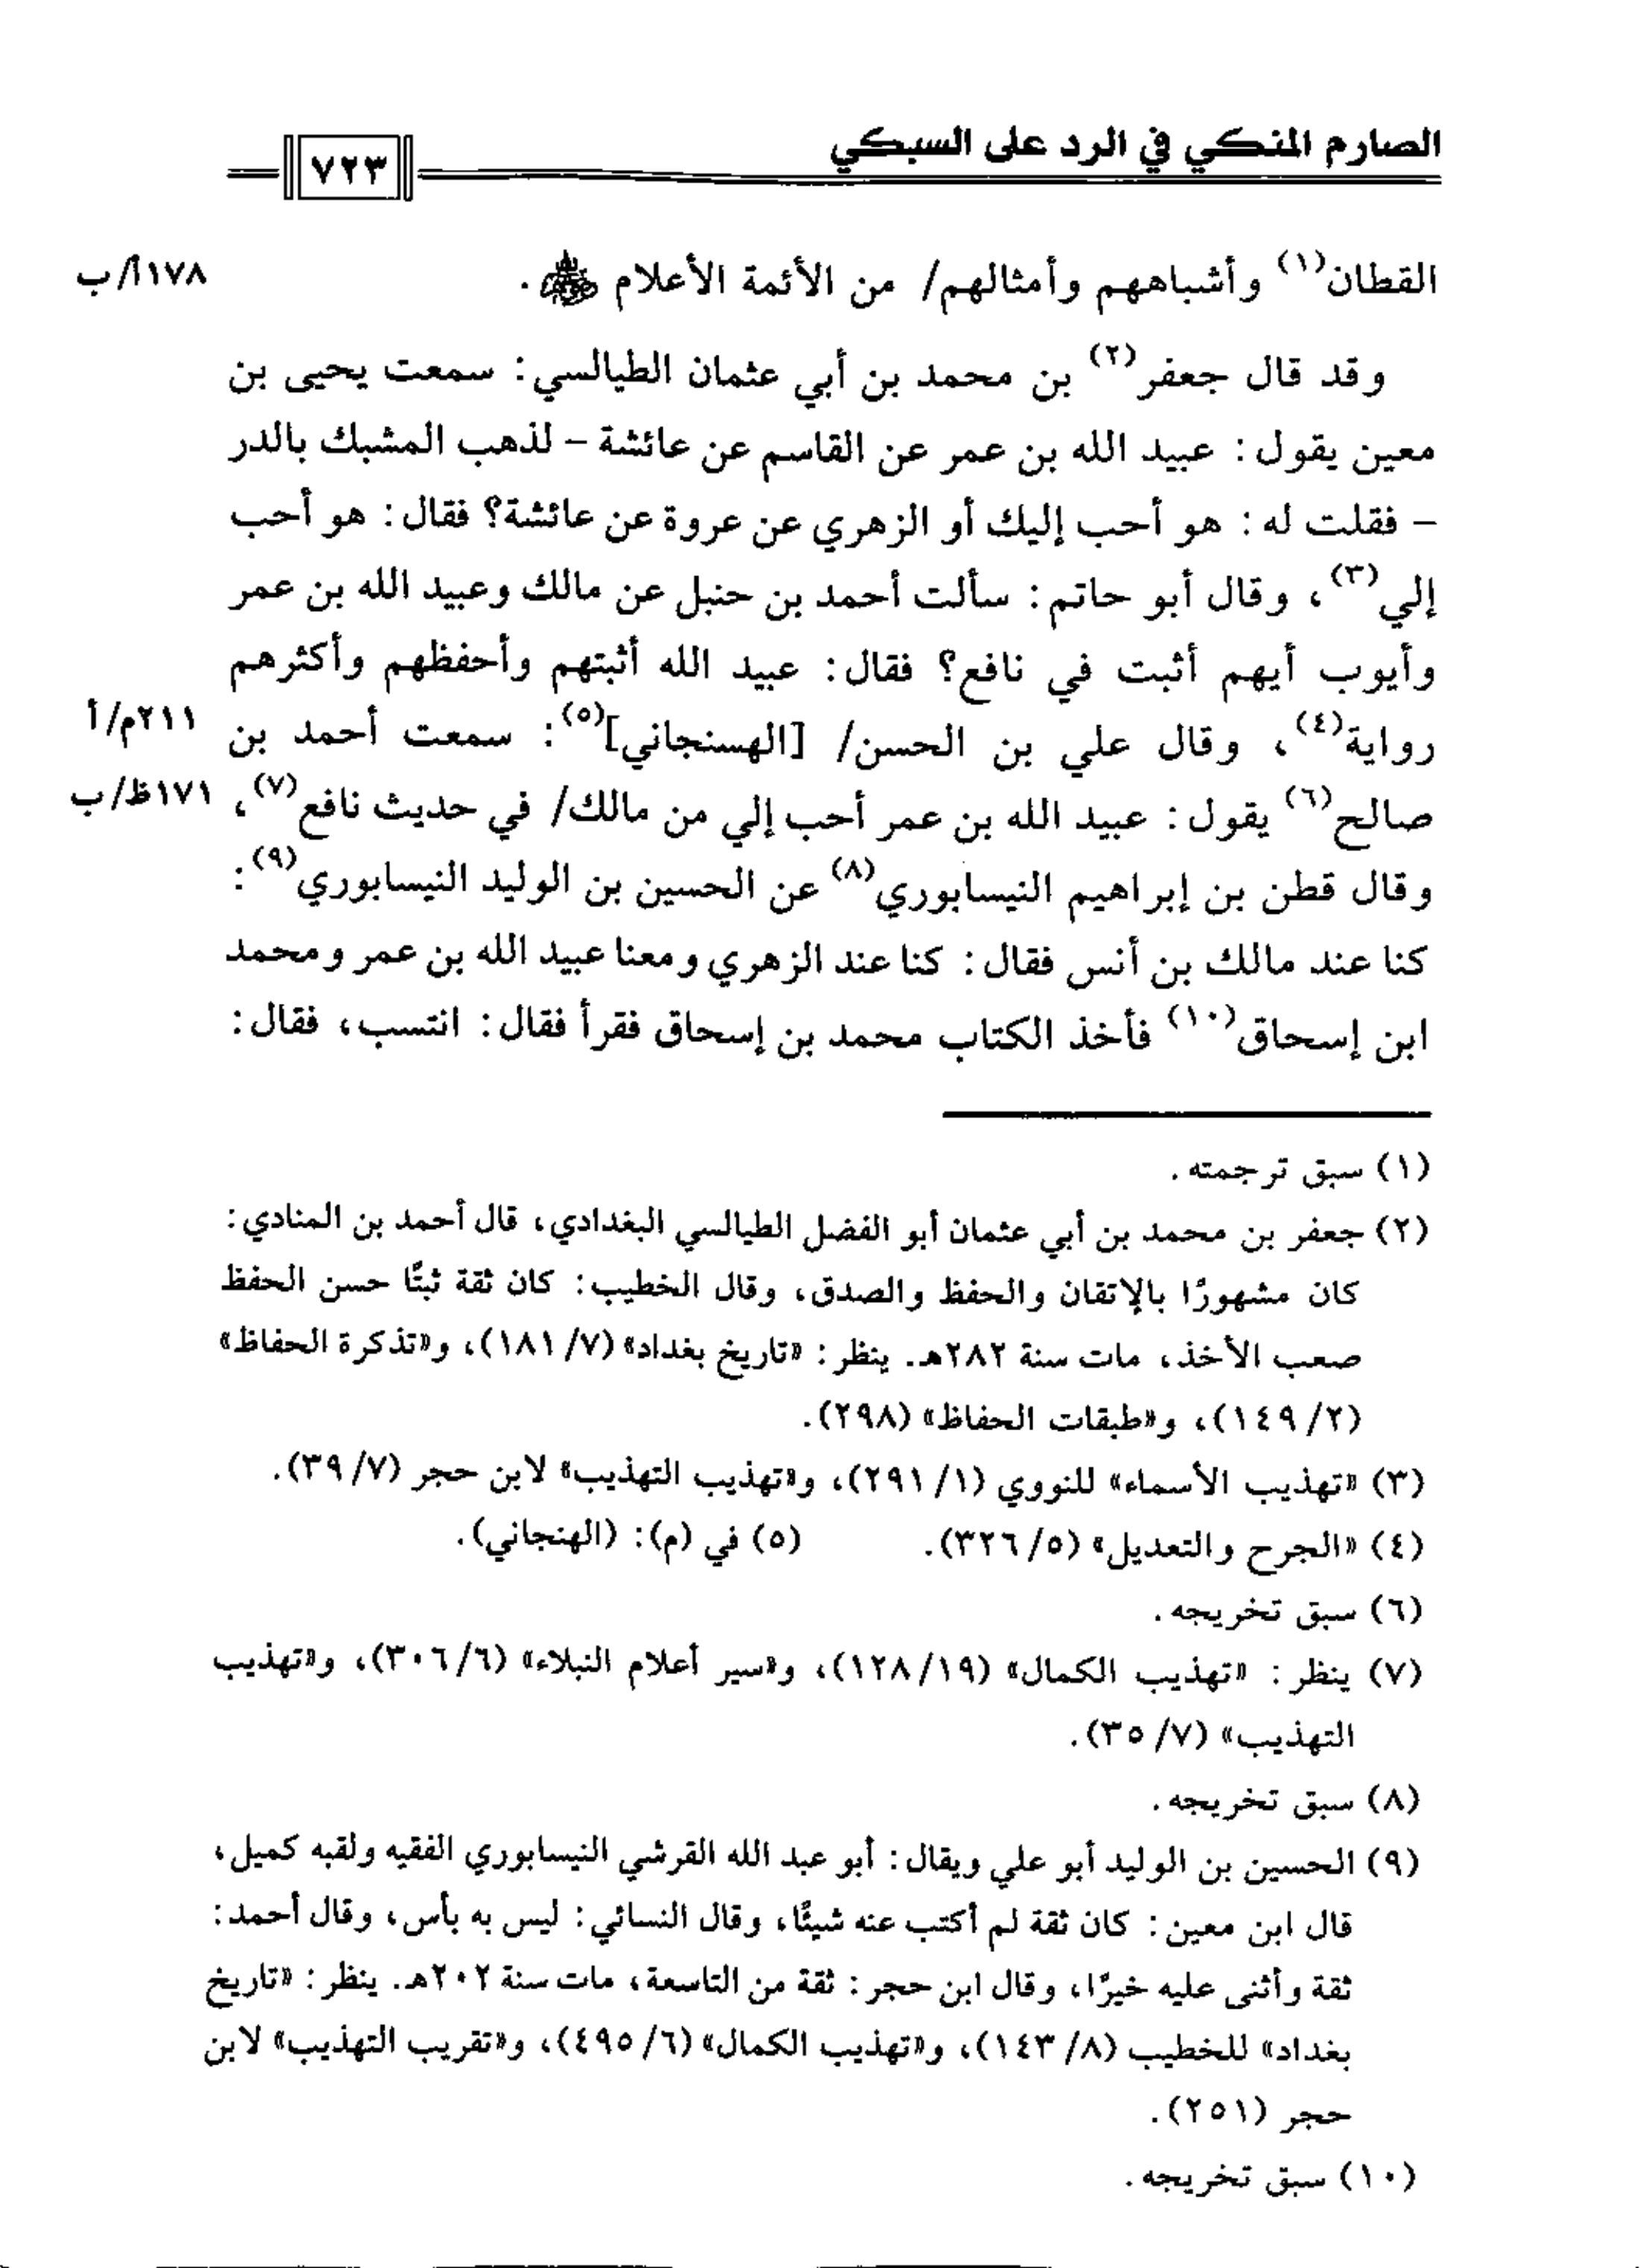 الصارم المنكي في الرد على السبكي
٧٢٣
القطان(١) وأشباههم وأمثالهم/ من الأئمة الأعلام ﷺ.
١٧٨أ/ب
وقد قال جعفر(٢) بن محمد بن أبي عثمان الطيالسي: سمعت يحيى بن
معين يقول: عبيد الله بن عمر عن القاسم عن عائشة - لذهب المشبك بالدر
- فقلت له: هو أحب إليك أو الزهري عن عروة عن عائشة؟ فقال: هو أحب
إلي(٣)، وقال أبو حاتم: سألت أحمد بن حنبل عن مالك وعبيد الله بن عمر
وأيوب أيهم أثبت في نافع؟ فقال: عبيد الله أثبتهم وأحفظهم وأكثرهم
رواية(٤)، وقال علي بن الحسن/ [الهسنجاني](٥): سمعت أحمد بن
٢١١م/أ
صالح(٦) يقول: عبيد الله بن عمر أحب إلي من مالك/ في حديث نافع(٧)،
١٧١ظ/ب
وقال قطن بن إبراهيم النيسابوري(٨) عن الحسين بن الوليد النيسابوري(٩):
كنا عند مالك بن أنس فقال: كنا عند الزهري ومعنا عبيد الله بن عمر ومحمد
ابن إسحاق(١٠) فأخذ الكتاب محمد بن إسحاق فقرأ فقال: انتسب، فقال:
(١) سبق ترجمته.
(٢) جعفر بن محمد بن أبي عثمان أبو الفضل الطيالسي البغدادي، قال أحمد بن المنادي:
كان مشهورًا بالإتقان والحفظ والصدق، وقال الخطيب: كان ثقة ثبتًا حسن الحفظ
صعب الأخذ، مات سنة ٢٨٢هـ. ينظر: «تاريخ بغداد» (٧/ ١٨١)، و«تذكرة الحفاظ»
(٢/ ١٤٩)، و«طبقات الحفاظ» (٢٩٨).
(٣) «تهذيب الأسماء» للنووي (١/ ٢٩١)، و«تهذيب التهذيب» لابن حجر (٧/ ٣٩).
(٤) «الجرح والتعديل» (٥/ ٣٢٦). (٥) في (م): (الهنجاني).
(٦) سبق تخريجه.
(٧) ينظر: «تهذيب الكمال» (١٩/ ١٢٨)، و«سير أعلام النبلاء» (٦/ ٣٠٦)، و«تهذيب
التهذيب» (٧/ ٣٥).
(٨) سبق تخريجه.
(٩) الحسين بن الوليد أبو علي ويقال: أبو عبد الله القرشي النيسابوري الفقيه ولقبه كميل،
قال ابن معين: كان ثقة لم أكتب عنه شيئًا، وقال النسائي: ليس به بأس، وقال أحمد:
ثقة وأثنى عليه خيرًا، وقال ابن حجر: ثقة من التاسعة، مات سنة ٢٠٢هـ. ينظر: «تاريخ
بغداد» للخطيب (٨/ ١٤٣)، و«تهذيب الكمال» (٦/ ٤٩٥)، و«تقريب التهذيب» لابن
حجر (٢٥١).
(١٠) سبق تخريجه.